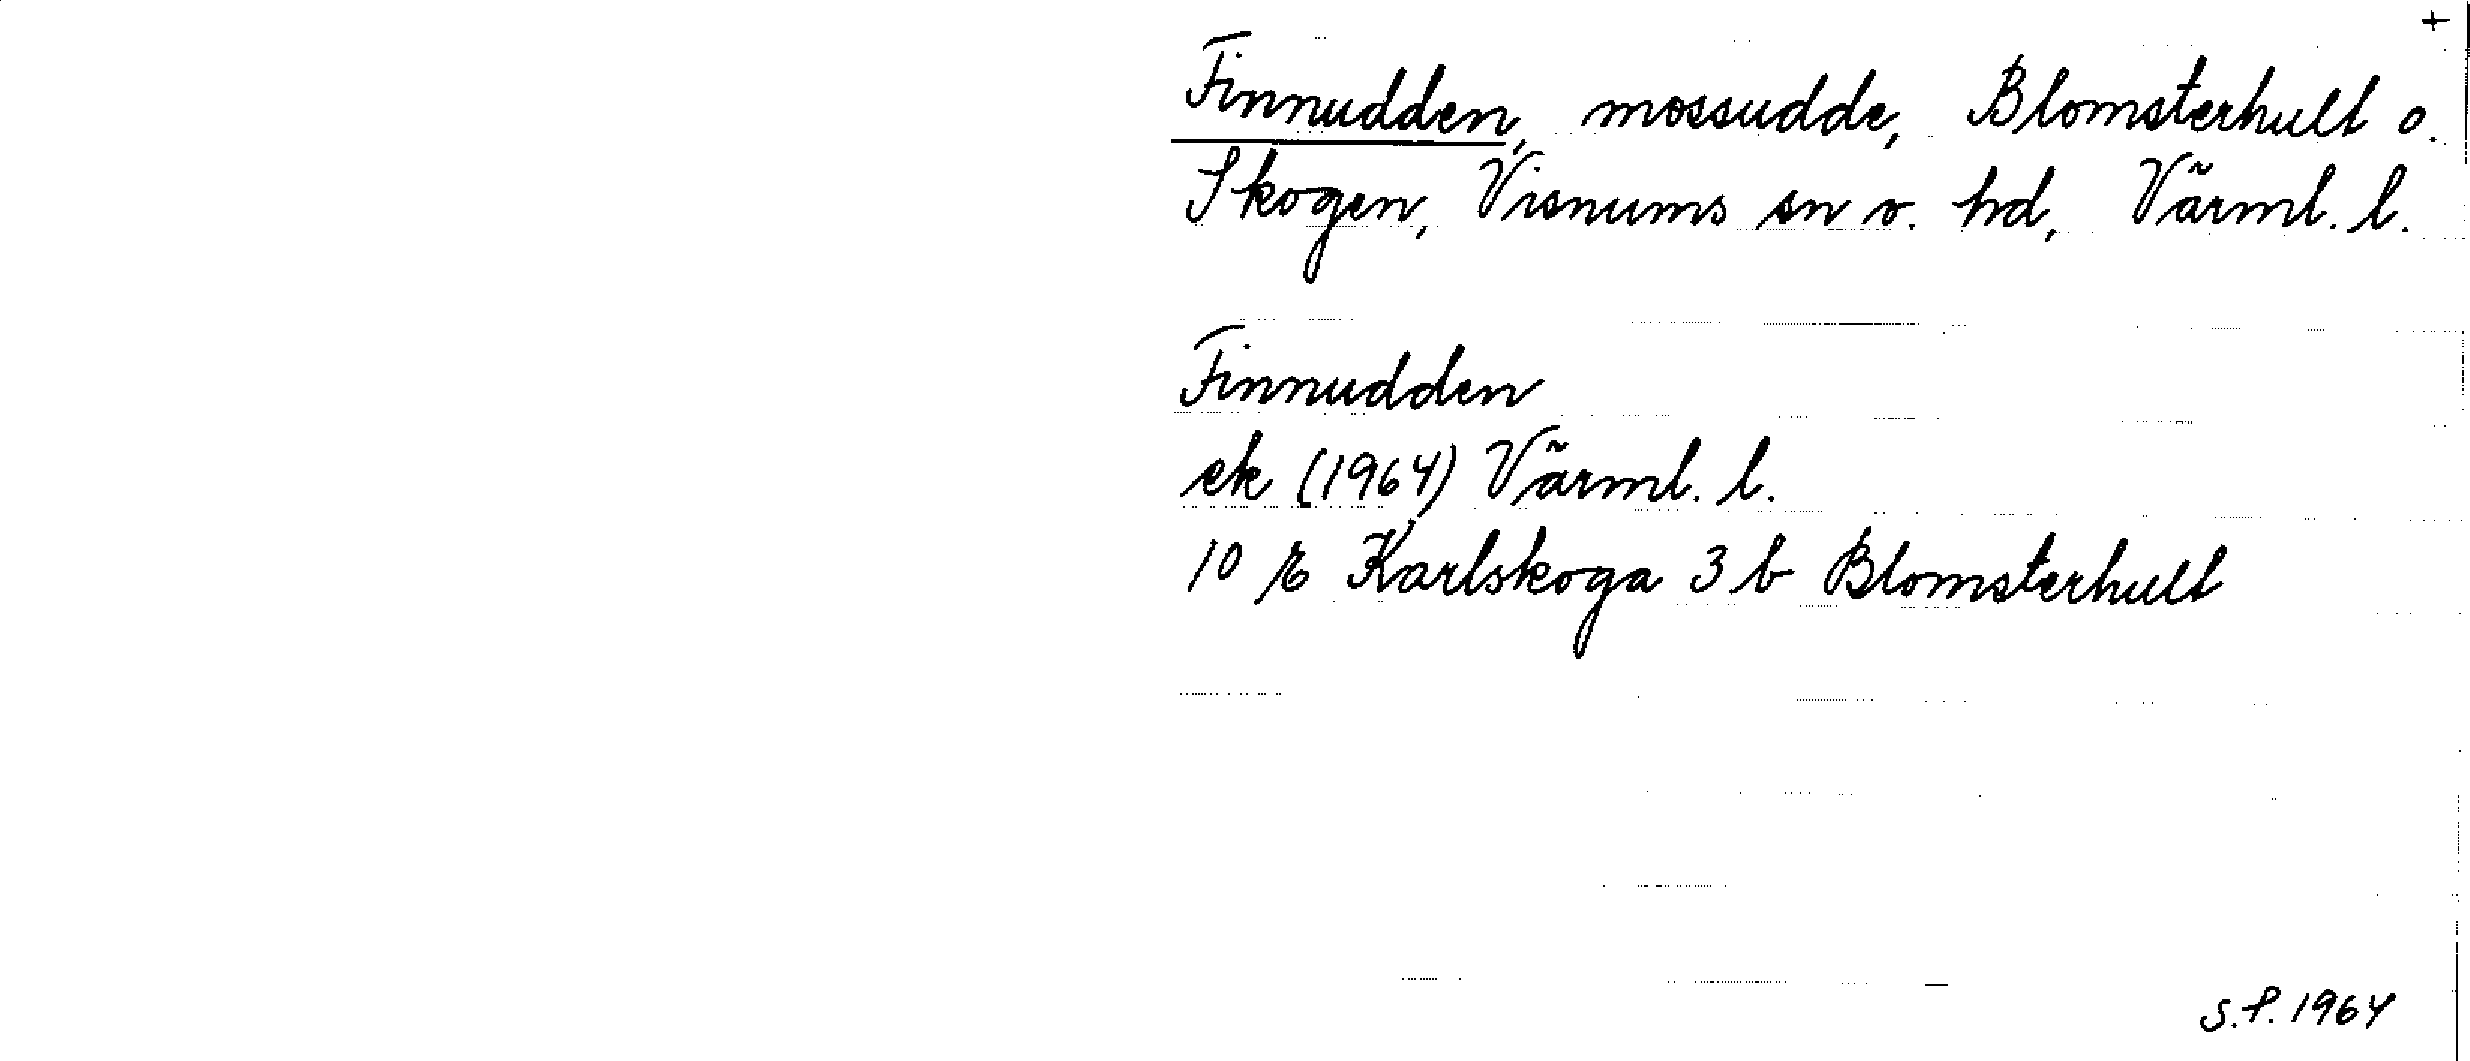 +
Finnudden, mossudde, Blomsterhult o.
Skogen, Visnums sn o. hd, Värml. l.
Finnudden
ek (1964) Värml. l.
10 E Karlskoga 3 b Blomsterhult
S.F. 1964